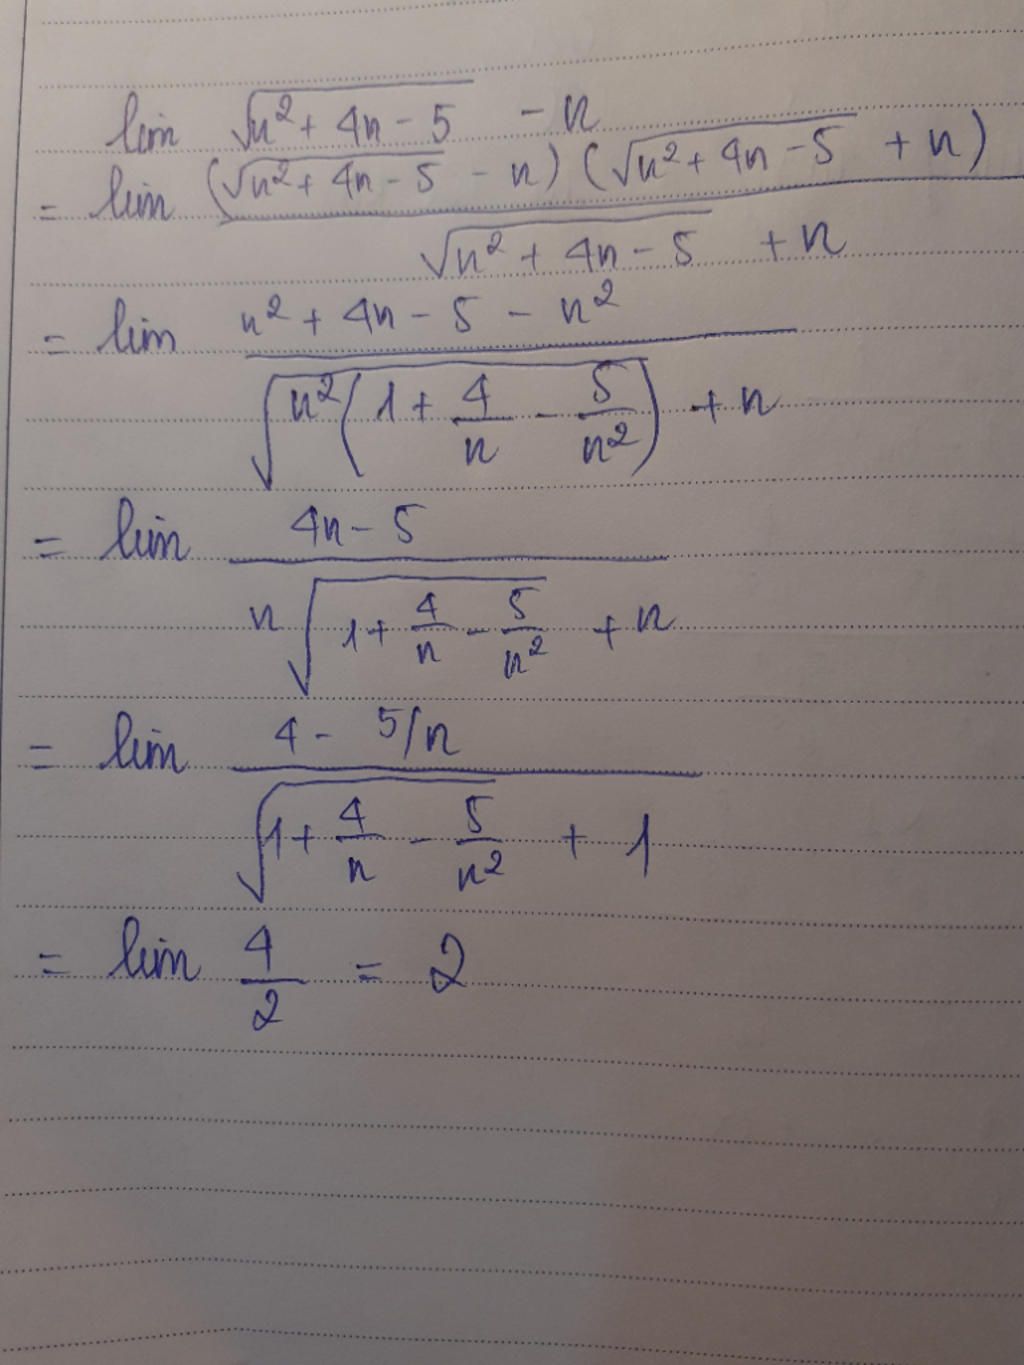 lim √(n² + 4n - 5) - n
= lim (√(n² + 4n - 5) - n) (√(n² + 4n - 5) + n) / (√(n² + 4n - 5) + n)
= lim (n² + 4n - 5 - n²) / (√(n²(1 + 4/n - 5/n²)) + n)
= lim (4n - 5) / (n√(1 + 4/n - 5/n²) + n)
= lim (4 - 5/n) / (√(1 + 4/n - 5/n²) + 1)
= lim 4/2 = 2